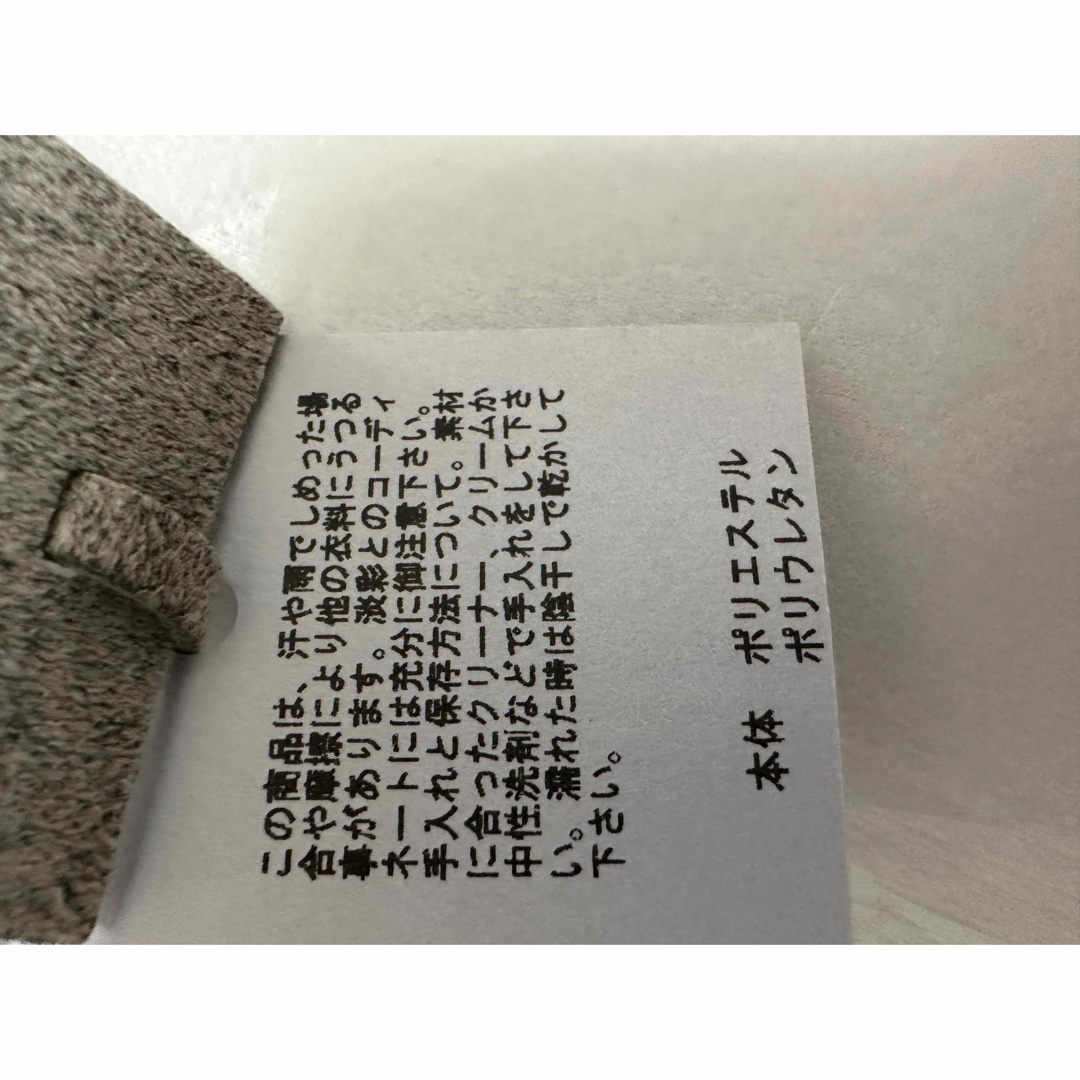 この商品は、汗や雨でしめった場
合や摩擦により他の衣料にうつる
事があります。淡彩とのコーディ
ネートには充分に御注意下さい。
手入れと保存方法について。素材
に合ったクリーナー、クリームか
中性洗剤などで手入れをして下さ
い。濡れた時は陰干しで乾かして
下さい。
本体 ポリエステル
ポリウレタン